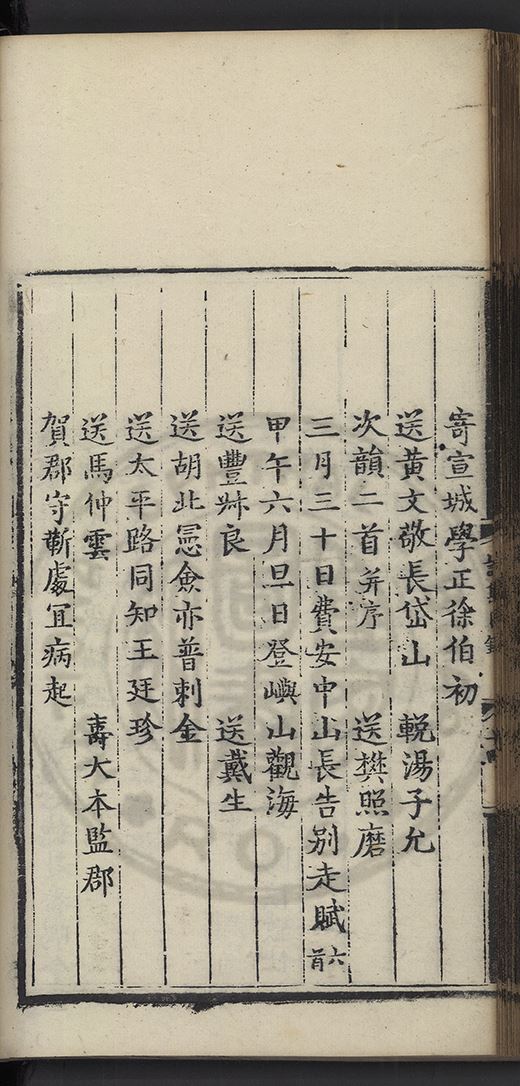 寄宣城學正徐伯初
送黃文敬長岱山　輓湯子允
次韻二首并序　送樊照磨
三月三十日費安中山長告別走賦六首
甲午六月旦日登嶼山觀海
送豐叔良　送戴生
送胡北憲僉亦普剌金
送太平路同知王廷珍
送馬仲雲　壽大本監郡
賀郡守靳處宜病起